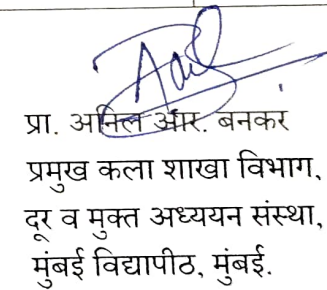 प्रा. अनिल आर. बनकर
प्रमुख कला शाखा विभाग,
दूर व मुक्त अध्ययन संस्था,
मुंबई विद्यापीठ, मुंबई.